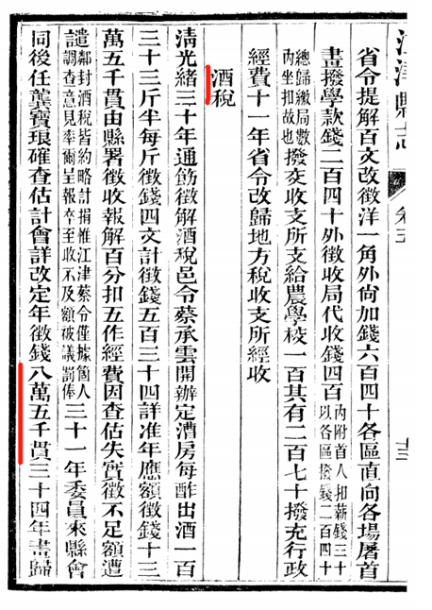 江津縣志
卷五
省令提解百文改徵洋一角外尚加錢六百四十各區直向各場屠首
畫撥學款錢二百四十外徵收局代收錢四百內附首人扣薪錢三十以各區撥錢二百四十
總歸繳局數內坐扣故也撥交收支所支給農學校一百其有二百七十撥充行政
經費十一年省令改歸地方稅收支所經收
酒稅
淸光緒三十年通飭徵解酒稅邑令蔡承雲開辦定漕房每酢出酒一百
三十三斤半每斤徵錢四文計徵錢五百三十四詳准年應額徵錢十三
萬五千貫由縣署徵收報解百分扣五作經費因查估失實徵不足額遭
譴鄰封酒稅皆約略計捐惟江津蔡令僅據箇人調查意見率爾呈報卒至收不及額被議罰俸三十一年委員來縣會
同後任龔寶琅確查估計會詳改定年徵錢八萬五千貫三十四年畫歸